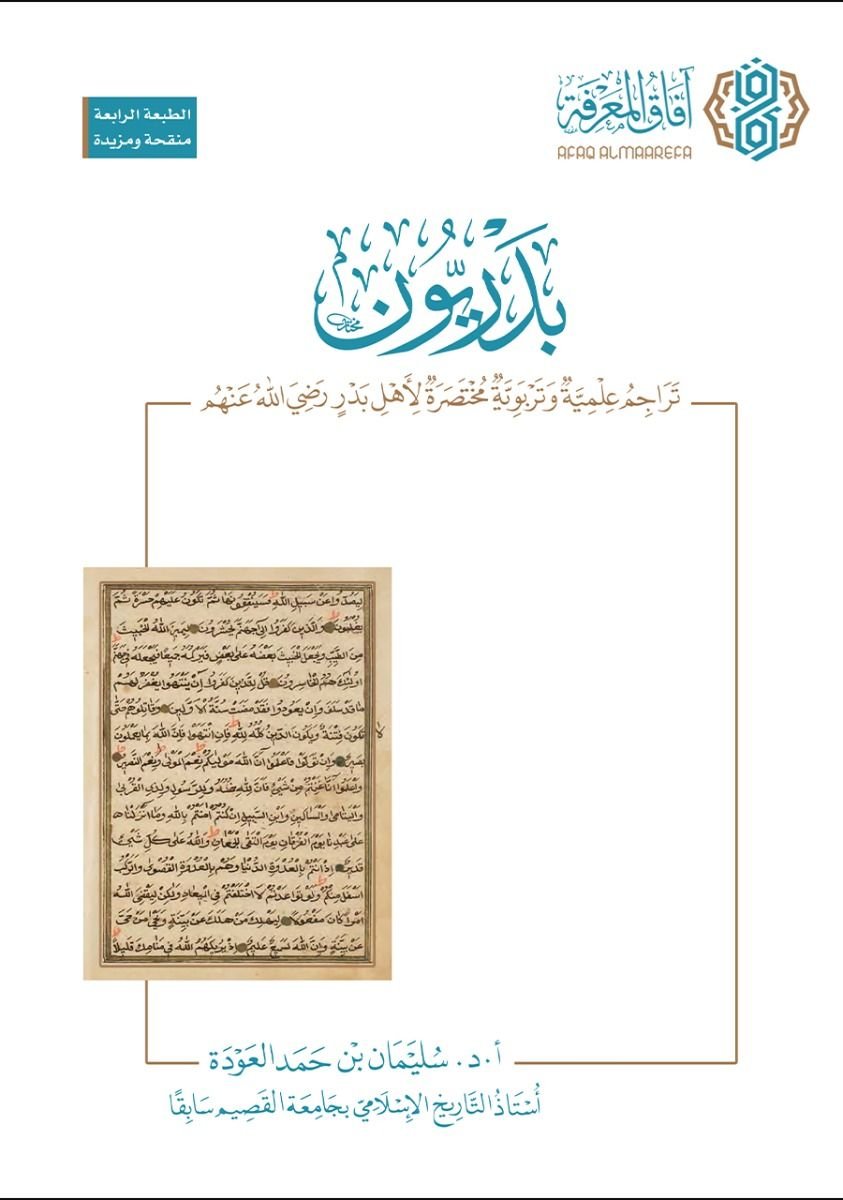 آفاق المعرفة
AFAQ ALMAAREFA
الطبعة الرابعة
منقحة ومزيدة
بَدْرِيُّون
تَرَاجِمُ عِلْمِيَّةٌ وَتَرْبَوِيَّةٌ مُخْتَصَرَةٌ لِأَهْلِ بَدْرٍ رَضِيَ اللهُ عَنْهُم
ليصدوا عن سبيل الله فسينفقونها ثم تكون عليهم حسرة ثم
يغلبون والذين كفروا الى جهنم يحشرون ليميز الله الخبيث
من الطيب ويجعل الخبيث بعضه على بعض فيركمه جميعا فيجعله في جهنم
اولئك هم الخاسرون قل للذين كفروا ان ينتهوا يغفر لهم
ما قد سلف وان يعودوا فقد مضت سنة الاولين وقاتلوهم حتى
لا تكون فتنة ويكون الدين كله لله فان انتهوا فان الله بما يعملون
بصير وان تولوا فاعلموا ان الله موليكم نعم المولى ونعم النصير
واعلموا انما غنمتم من شيء فان لله خمسه وللرسول ولذي القربى
واليتامى والمساكين وابن السبيل ان كنتم امنتم بالله وما انزلنا
على عبدنا يوم الفرقان يوم التقى الجمعان والله على كل شيء
قدير اذ انتم بالعدوة الدنيا وهم بالعدوة القصوى والركب
اسفل منكم ولو تواعدتم لاختلفتم في الميعاد ولكن ليقضي الله
امرا كان مفعولا ليهلك من هلك عن بينة ويحيى من حي
عن بينة وان الله لسميع عليم اذ يريكهم الله في منامك قليلا
أ.د. سُلَيْمَان بْن حَمَد العَوْدَة
أُسْتَاذُ التَّارِيخِ الإِسْلَامِيِّ بِجَامِعَة القَصِيم سَابِقًا